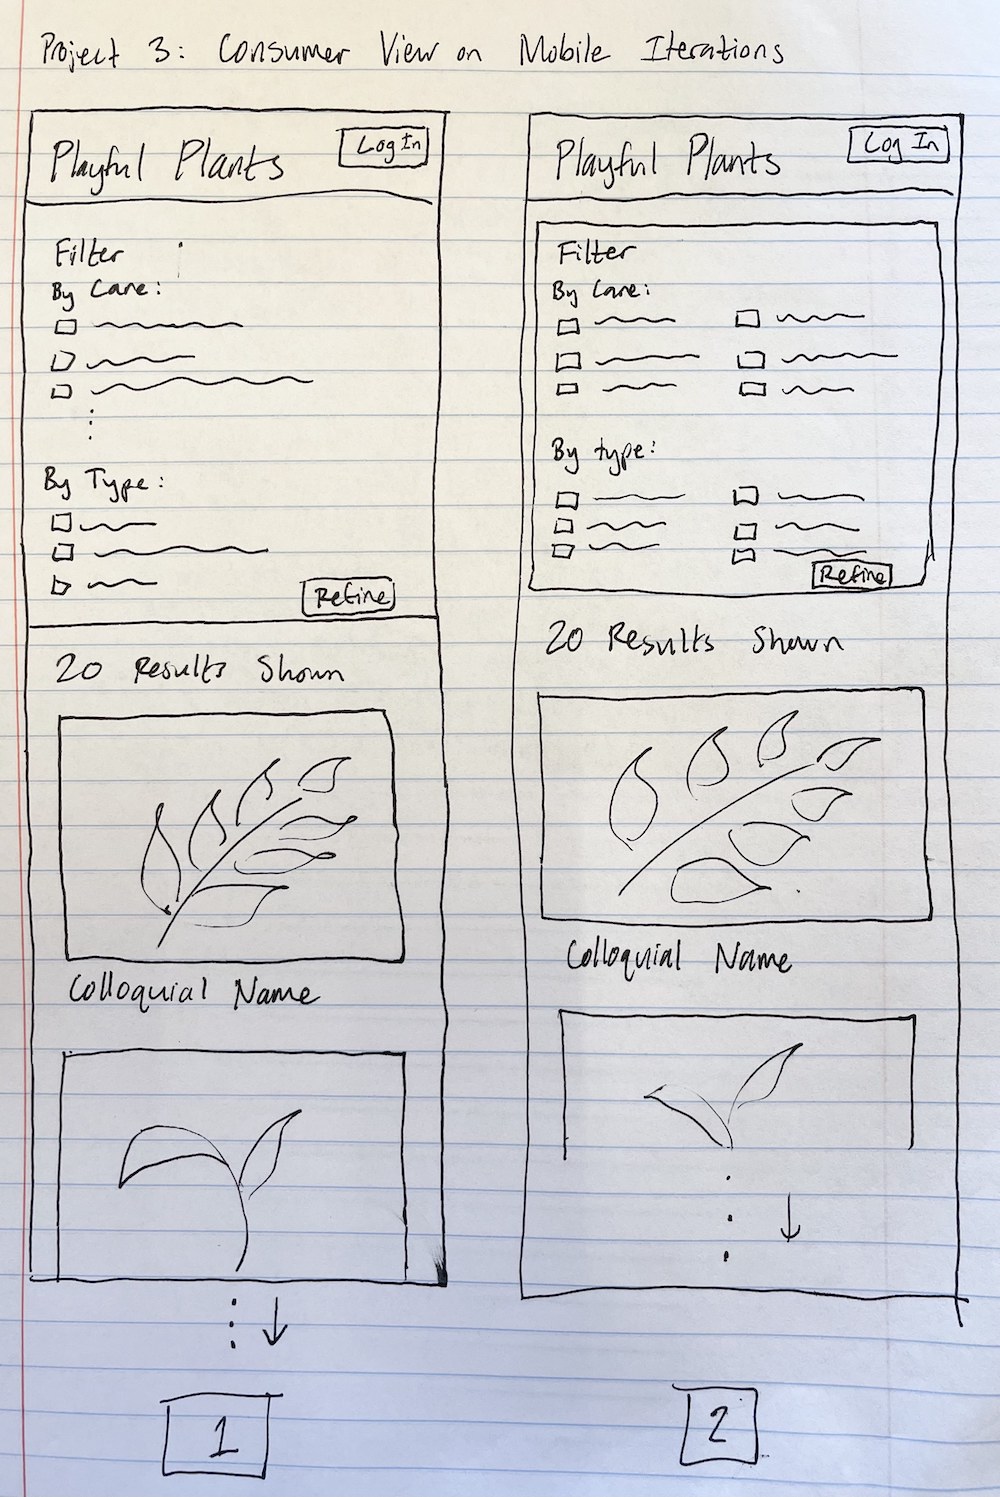 Project 3: Consumer View on Mobile Iterations
Playful Plants
Log In
Filter
By Care:
By Type:
Refine
20 Results Shown
Colloquial Name
1
Playful Plants
Log In
Filter
By Care:
By type:
Refine
20 Results Shown
Colloquial Name
2